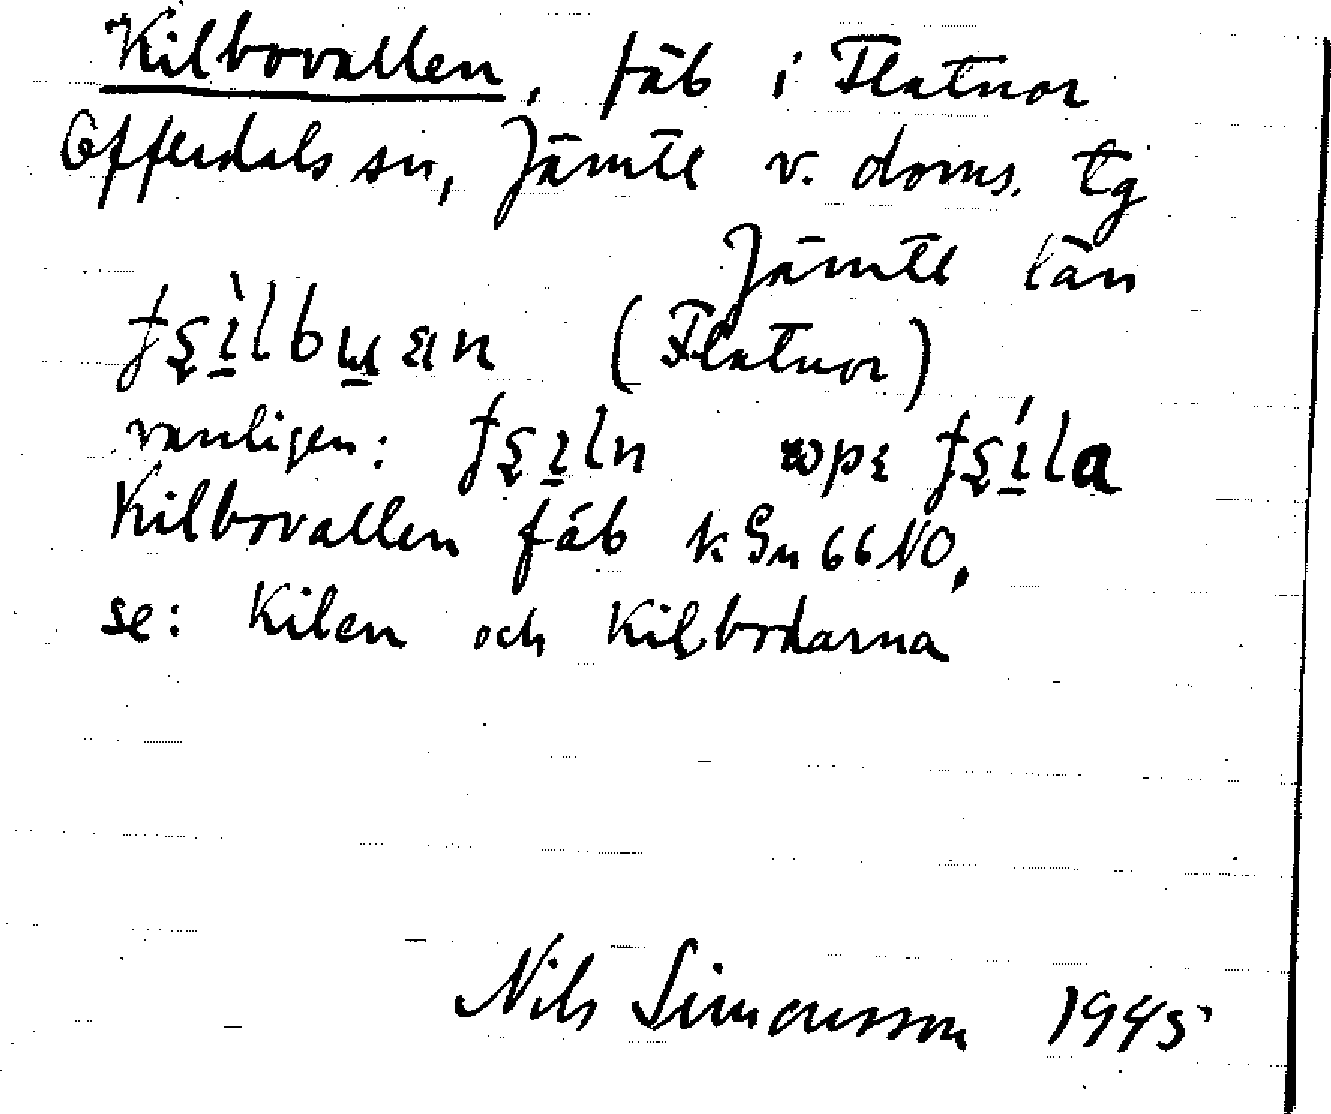 Kilbovallen, fäb i Flatnor
Offerdals sn, Jämtl v. doms. tg
Jämtl län
(Flatnor)
vanligen:
Kilbovallen fäb k Gn 66 NO,
se: Kilen och Kilbodarna
Nils Simonsson 1945